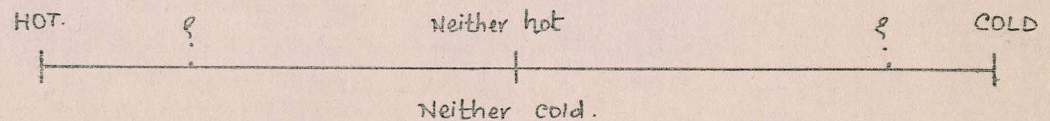 HOT. ? Neither hot ? COLD
Neither cold.